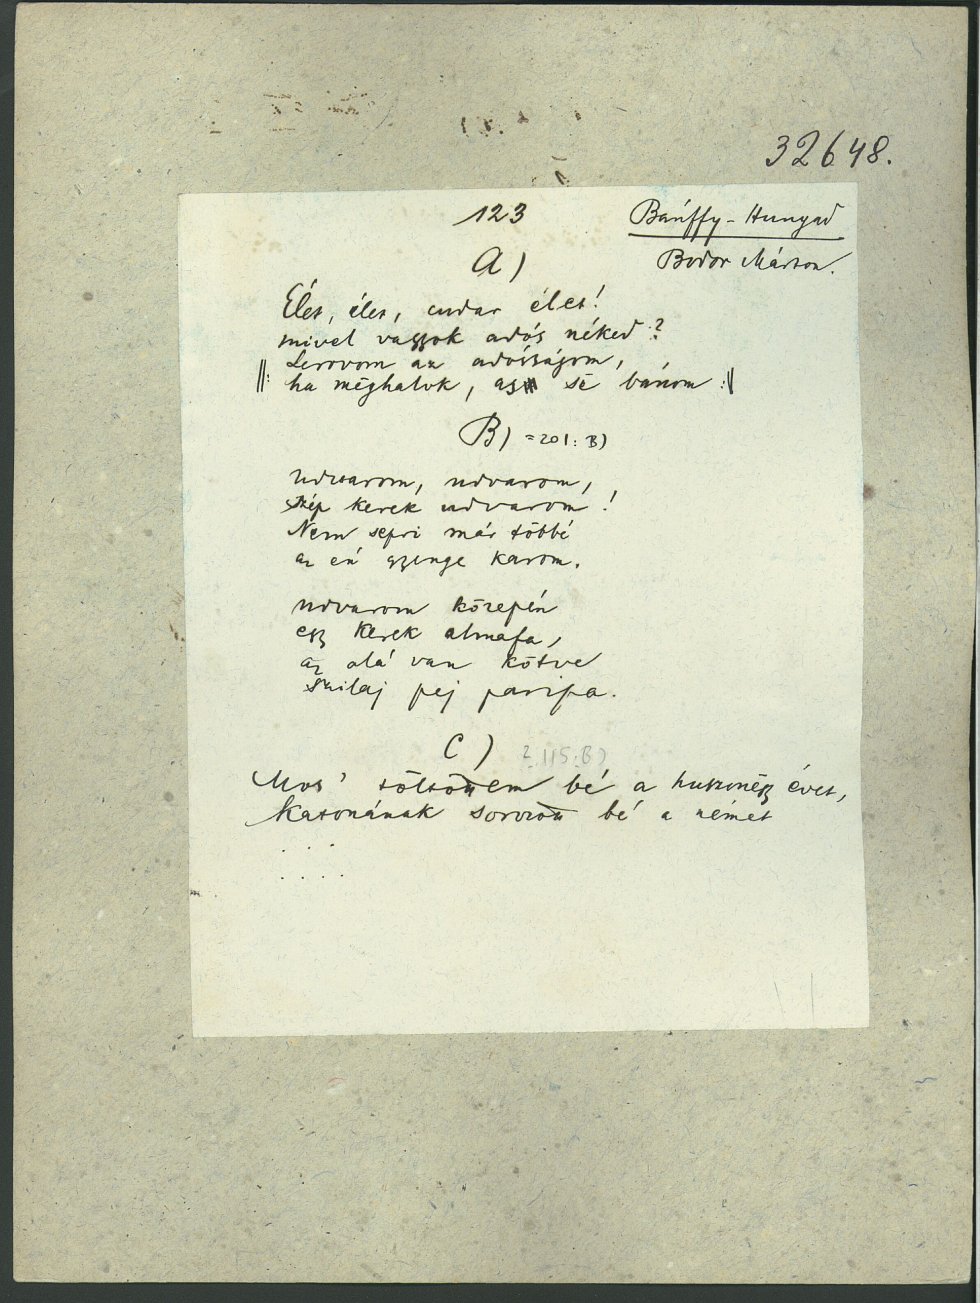 32648.
123
Bánffy-Hunyad
A)
Bodor Márton.
Élet, élet, cudar élet!
mivel vagyok adós néked?
Lerovom az adósságom,
||: ha méghalok, az sé bánom :||
B) = 201: B)
Udvarom, udvarom,
szép kerek udvarom!
Nem sepri már többé
az én gyenge karom.
Udvarom közepén
egy kerek almafa,
az alá van kötve
szilaj pej paripa.
C) ? 115: B)
Mos' töltöttem bé a huszonégy évet,
Katonának sorozott bé a német
. . . .
. . . .